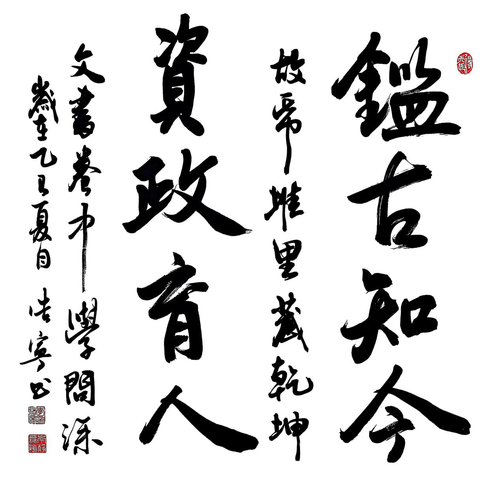 鑑古知今
故帋堆里藏乾坤
資政育人
文書卷中學問深
歲在乙夏日寧书